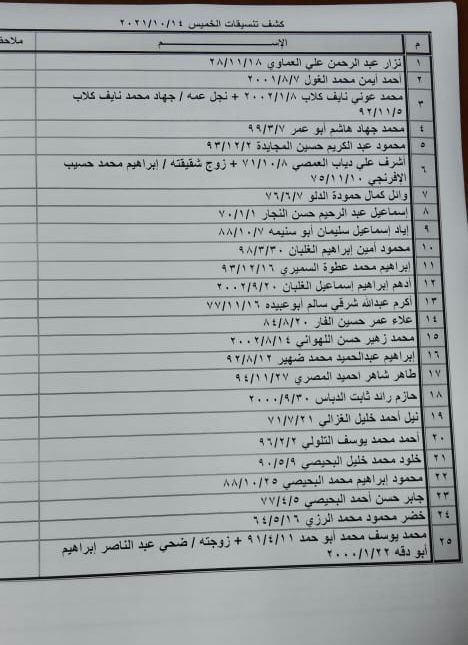 كشف تنسيقات الخميس ٢٠٢١/١٠/١٤
م الإســـــــم ملاحظ
١ نزار عبد الرحمن علي العماوي ٢٨/١١/١٨
٢ أحمد أيمن محمد الغول ٢٠٠١/٨/٧
٣ محمد عوني نايف كلاب ٢٠٠٢/١/٨ + نجل عمه / جهاد محمد نايف كلاب
٩٢/١١/٥
٤ محمد جهاد هاشم أبو عمر ٩٩/٣/٧
٥ محمود عبد الكريم حسين المجايدة ٩٣/١٢/٢
٦ أشرف علي دياب العمصي ٧١/١٠/٨ + زوج شقيقته / إبراهيم محمد حسيب
الإفرنجي ٧٥/١١/١٠
٧ وائل كمال حمودة الدلو ٧٦/٦/٧
٨ إسماعيل عبد الرحيم حسن النجار ٧٠/١/١
٩ إياد إسماعيل سليمان أبو سنيمه ٨٨/١٠/٧
١٠ محمود أمين إبراهيم الغلبان ٩٨/٣/٣٠
١١ إبراهيم محمد عطوة السميري ٩٣/١٢/١٦
١٢ أدهم إبراهيم إسماعيل الغلبان ٢٠٠٢/٩/٢٠
١٣ أكرم عبدالله شرقي سالم أبوعبيده ٧٧/١١/١٦
١٤ علاء عمر حسين الفار ٨٤/٨/٢٠
١٥ محمد زهير حسن اللهواني ٢٠٠٢/٨/١٤
١٦ إبراهيم عبدالحميد محمد ضهير ٩٢/٨/١٢
١٧ طاهر شاهر احميد المصري ٩٤/١١/٢٧
١٨ حازم رائد ثابت الدباس ٢٠٠٠/٩/٣٠
١٩ نيل أحمد خليل الغزالي ٧١/٧/٢١
٢٠ أحمد محمد يوسف التلولي ٩٦/٢/٢
٢١ خلود محمد خليل البحيصي ٩٠/٥/٩
٢٢ محمود إبراهيم محمد البحيصي ٨٨/١٠/٢٥
٢٣ جابر حسن أحمد البحيصي ٧٧/٤/٥
٢٤ خضر محمود محمد الرزي ٦٤/٥/١٦
٢٥ محمد يوسف محمد أبو حمد ٩١/٤/١١ + زوجته / ضحي عبد الناصر إبراهيم
أبو دقه ٢٠٠٠/١/٢٢